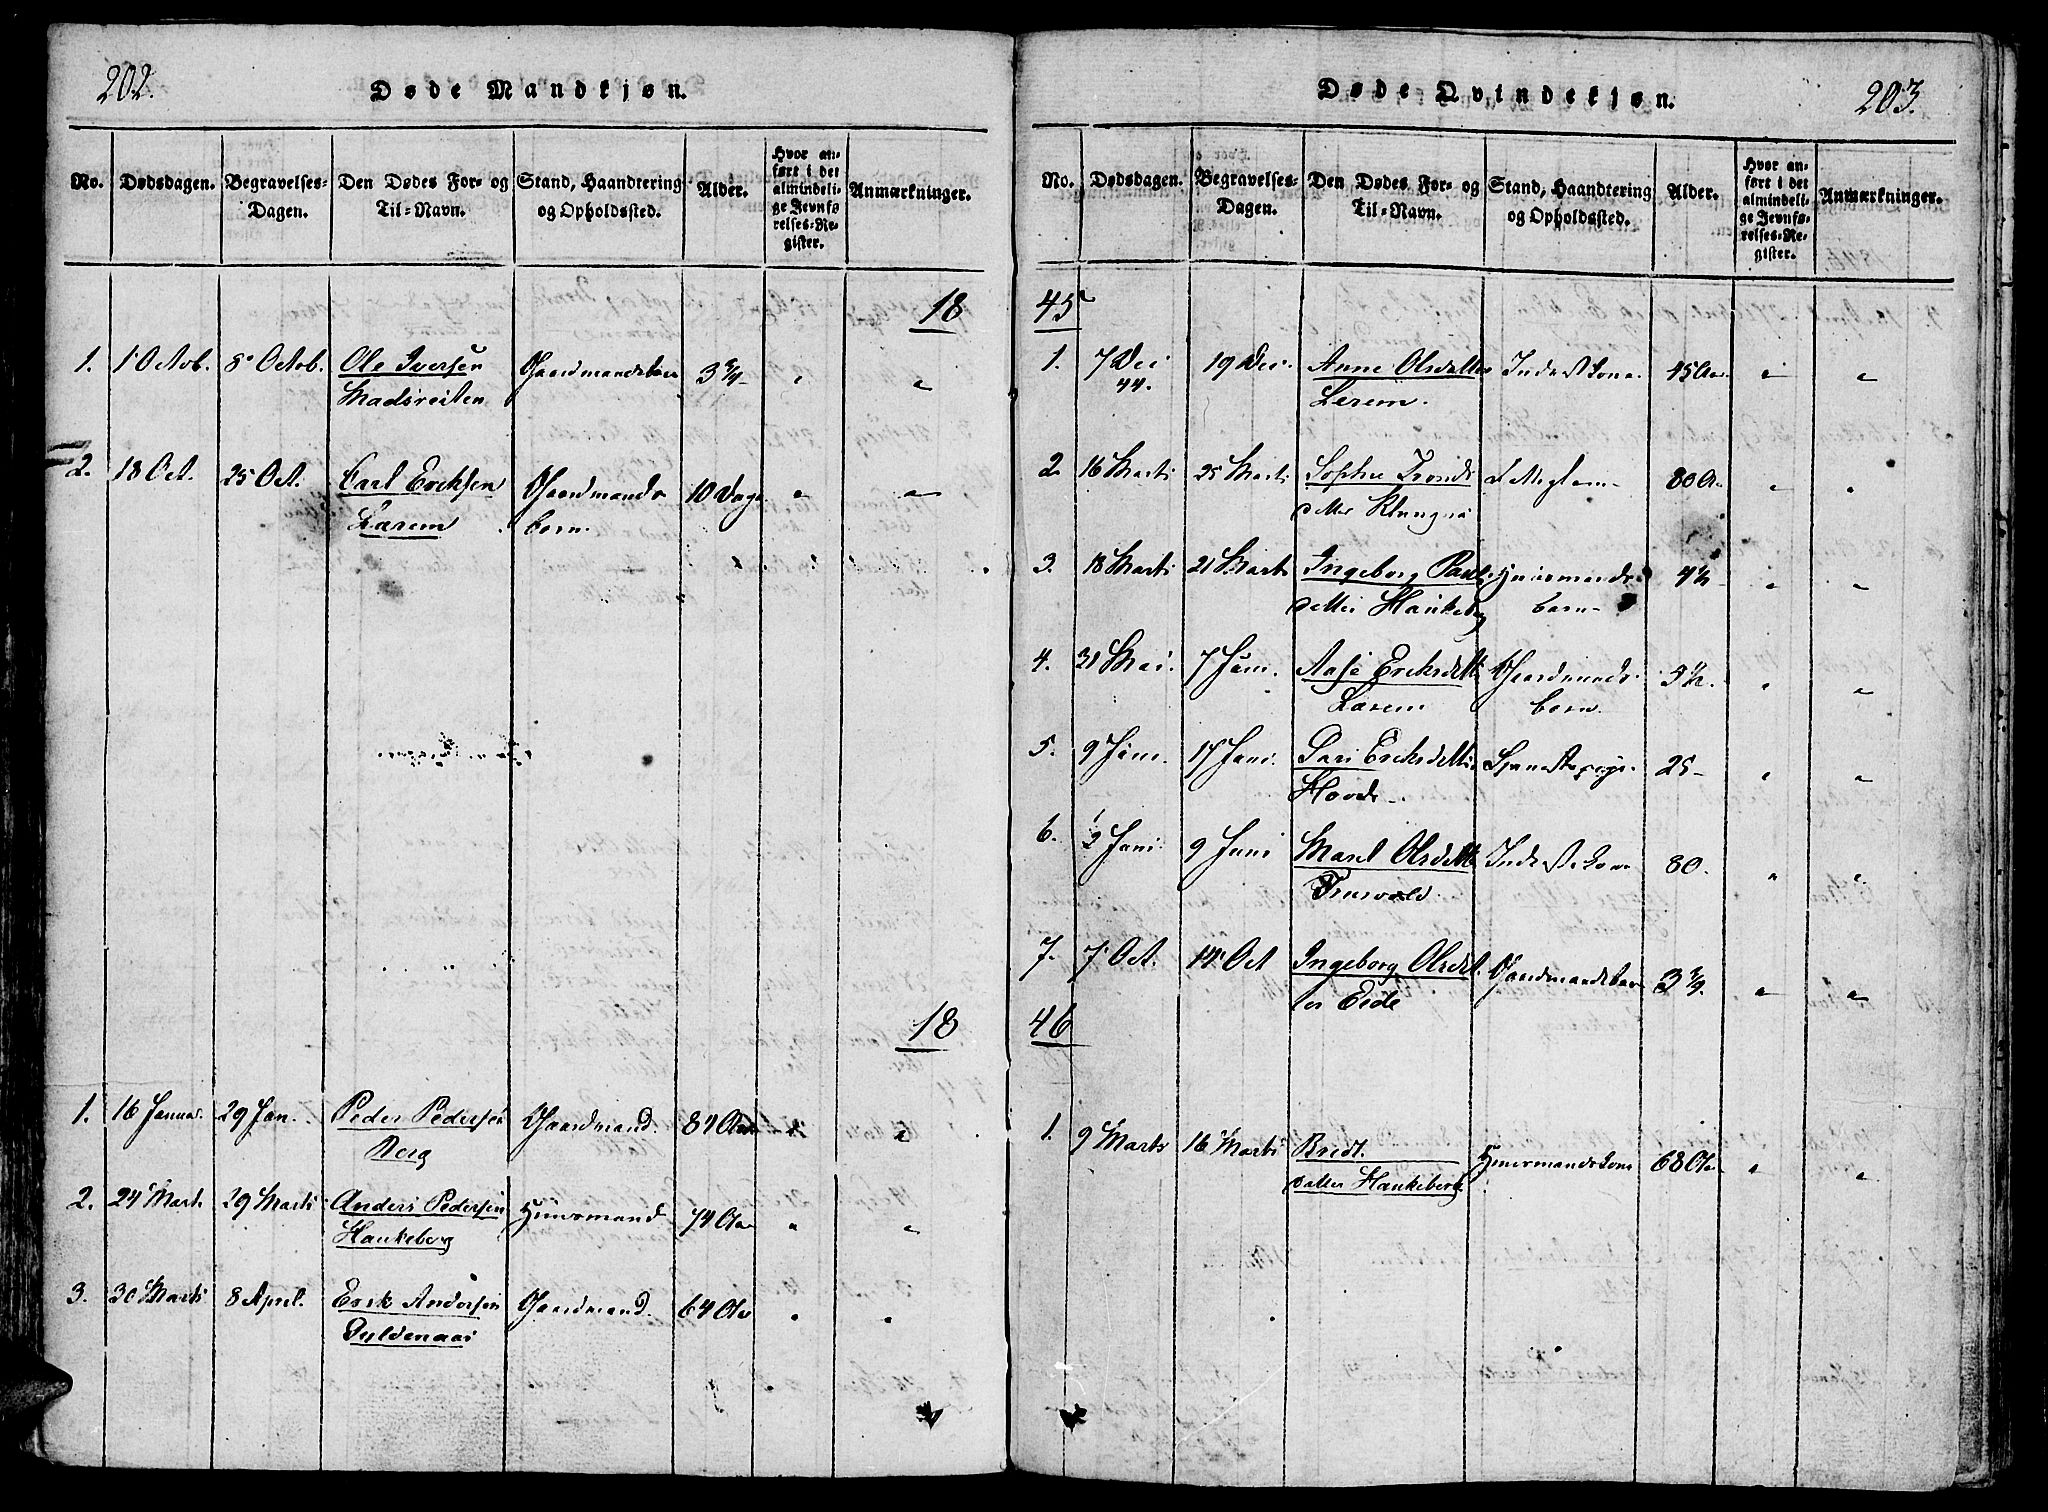 202.
Døde Mandkjøn.
No. Dødsdagen. Begravelses-Dagen. Den Dødes For- og Til-Navn. Stand, Haandtering og Opholdssted. Alder. Hvor anført i det almindelige Jevnførelses-Register. Anmærkninger.
18
1. 1 Octob. 8 Octob. Ole Iversen Gaardmandsbarn 3 3/4 " "
Madsveiten
2. 18 Oct. 25 Oct. Carl Ericksen Gaardmands 10 Dage " "
Lærem barn.
18
1. 16 Januar. 29 Jan. Peder Pedersen Gaardmand. 84 Aar " "
Berg
2. 24 Mart. 29 Marts Anders Pedersen Huusmand 74 Aar " "
Haukeberg
3. 30 Marts 8 April. Erik Andersen Gaardmand. 64 Aar " "
Gyldenaas
203.
Døde Qvindekjøn.
No. Dødsdagen. Begravelses-Dagen. Den Dødes For- og Til-Navn. Stand, Haandtering og Opholdssted. Alder. Hvor anført i det almindelige Jevnførelses-Register. Anmærkninger.
45
1. 7 Dec 19 Dec. Anne Olsdatter Inderstkone 45 Aar " "
44. Lerem.
2. 16 Marts 25 Marts Sophie Tronds Lægdslem 80 Aar " "
datter Klungnes
3. 18 Marts 21 Marts Ingeborg Pauls Huusmands 4 1/2 " "
datter Haukeberg barn
4. 31 Mai. 7 Juni. Aase Ericksdatter Gaardmands 5 1/2. " "
Lærem barn.
5. 9 Juni. 17 Juni. Sari Ericksdatter 25 " "
Hovde
6. 2 Juni. 9 Juni Marel Olsdatter Inderstkone 80. " "
7. 7 Oct. 14 Oct Ingeborg Olsdat Gaardmandsbarn 3 3/4. " "
ter Eide
46
1. 9 Marts 16 Marts Bredt. Huusmandskone 68 Aar " "
datter Haukeberg